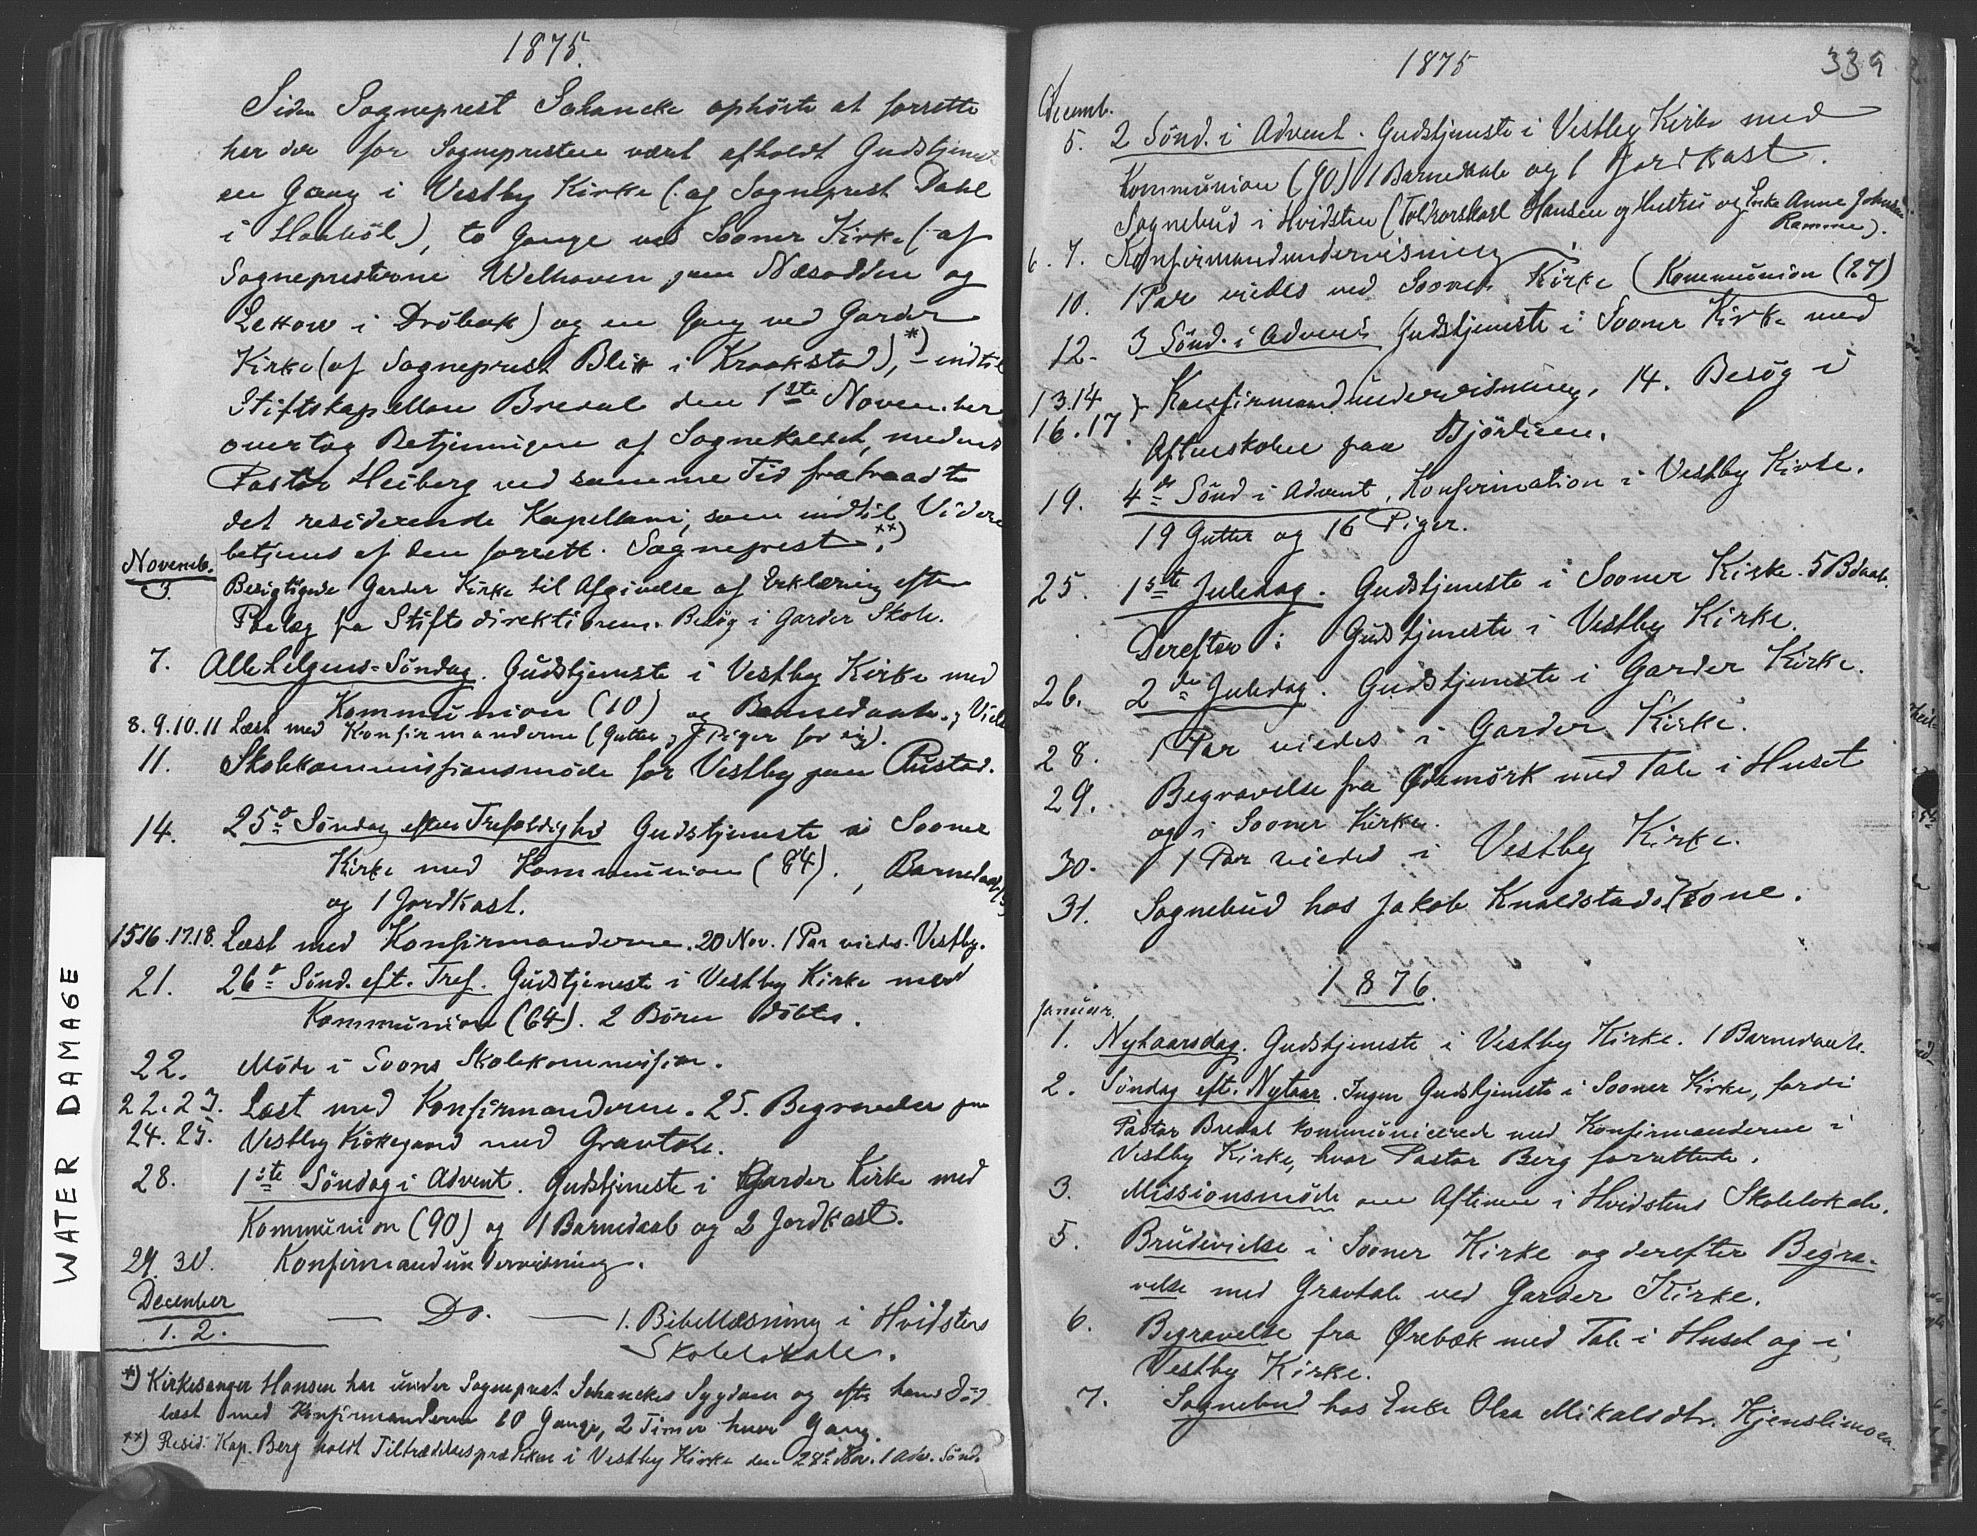 1875.
Siden Sogneprest Schancke ophørte at forrette
her der for Sognepresten vært afholdt Gudstjeneste
en Gang i Vestby Kirke (: af Sogneprest Dahl
i Haabøl), to Gange ved Sooner Kirke (: af
Sognepresterne Welhaven paa Næsodden og
i Drøbak) og en Gang ved Garder
Kirke (af Sogneprest Blix i Kraakstad), *) – indtil
Stiftskapellan Bredal den 1ste November
overtog Betjeningen af Sognekaldet, medens
Pastor Heiberg ved samme Tid fratraadte
det residerende Kapellani, som indtil Videre
betjenes af den forrett. Sogneprest. **)
Novemb.
3. Besigtigede Garder Kirke til Afgivelse af Erklæring efter
Paalæg fra Stiftsdirektionen. Besøg i Garder Skole.
7. Allehelgens-Søndag. Gudstjeneste i Vestby Kirke med
Kommunion (10) og Barnedaab.
8. 9. 10. 11 Læst med Konfirmanderne (Gutter og Piger for sig).
11. Skolekommissionsmøde for Vestby paa Rustad.
14. 25de Søndag efter Trefoldighed Gudstjeneste i Sooner
Kirke med Kommunion (84), Barnedaab
og 1 Jordkast.
15 16. 17. 18. Læst med Konfirmanderne. 20 Nov. 1 Par viedes. Vestby.
21. 26de Sønd. eft. Tref. Gudstjeneste i Vestby Kirke med
Kommunion (64). 2 Børn døbtes.
22. Møde i Soons Skolekommission.
22. 23. Læst med Konfirmanderne. 25. Begravelse paa
24. 25. Vestby Kirkegaard med Gravtale.
28. 1ste Søndag i Advent. Gudstjeneste i Garder Kirke med
Kommunion (90) og 1 Barnedaab og 2 Jordkast.
29. 30. Konfirmandundervisning.
December
1. 2. — Do. — 1. Bibellæsning i Hvidstens
Skolelokale.
*) Kirkesanger Hansen har under Sogneprest Schanckes Sygdom og efter hans Død
læst med Konfirmanderne 10 Gange, 2 Timer hver Gang.
**) Resid. Kap. Berg holdt Tiltrædelsesprædiken i Vestby Kirke den 28de Nov. 1 Adv. Sønd.
WATER DAMAGE
1875
339
Decemb.
5. 2 Sønd. i Advent. Gudstjeneste i Vestby Kirke med
Kommunion (90) 1 Barnedaab og 1 Jordkast.
Sognebud i Hvidsten (Toldoroskarl Hansen og Hustru og Enke Anne Johnsen
Ramme).
6. 7. Konfirmandundervisning
10. 1 Par viedes ved Sooner Kirke (Kommunion (27)
12. 3 Sønd. i Advent Gudstjeneste i Sooner Kirke med
13. 14 } Konfirmandundervisning, 14. Besøg i
16. 17. Aftenskolen paa Bjørlien.
19. 4de Sønd i Advent, Konfirmation i Vestby Kirke.
19 Gutter og 16 Piger.
25. 1ste Juledag. Gudstjeneste i Sooner Kirke. 5 Bdaab.
Derefter: Gudstjeneste i Vestby Kirke.
26. 2de Juledag. Gudstjeneste i Garder Kirke.
28. 1 Par viedes i Garder Kirke.
29. Begravelse fra Ødemørk med Tale i Huset
og i Sooner Kirke.
30. 1 Par viedes i Vestby Kirke.
31. Sognebud hos Jakob Knaldstads Kone.
1876.
Januar.
1. Nytaarsdag. Gudstjeneste i Vestby Kirke. 1 Barnedaab.
2. Søndag eft. Nytaar. Ingen Gudstjeneste i Sooner Kirke, fordi
Pastor Bredal kommunicerede med Konfirmanderne i
Vestby Kirke, hvor Pastor Berg forrettede.
3. Missionsmøde om Aftenen i Hvidstens Skolelokale.
5. Brudevielse i Sooner Kirke og derefter Begra-
velse med Gravtale ved Garder Kirke.
6. Begravelse fra Ørebæk med Tale i Huset og i
Vestby Kirke.
7. Sognebud hos Enke Olea Mikalsdtr. Kjenslimoen.